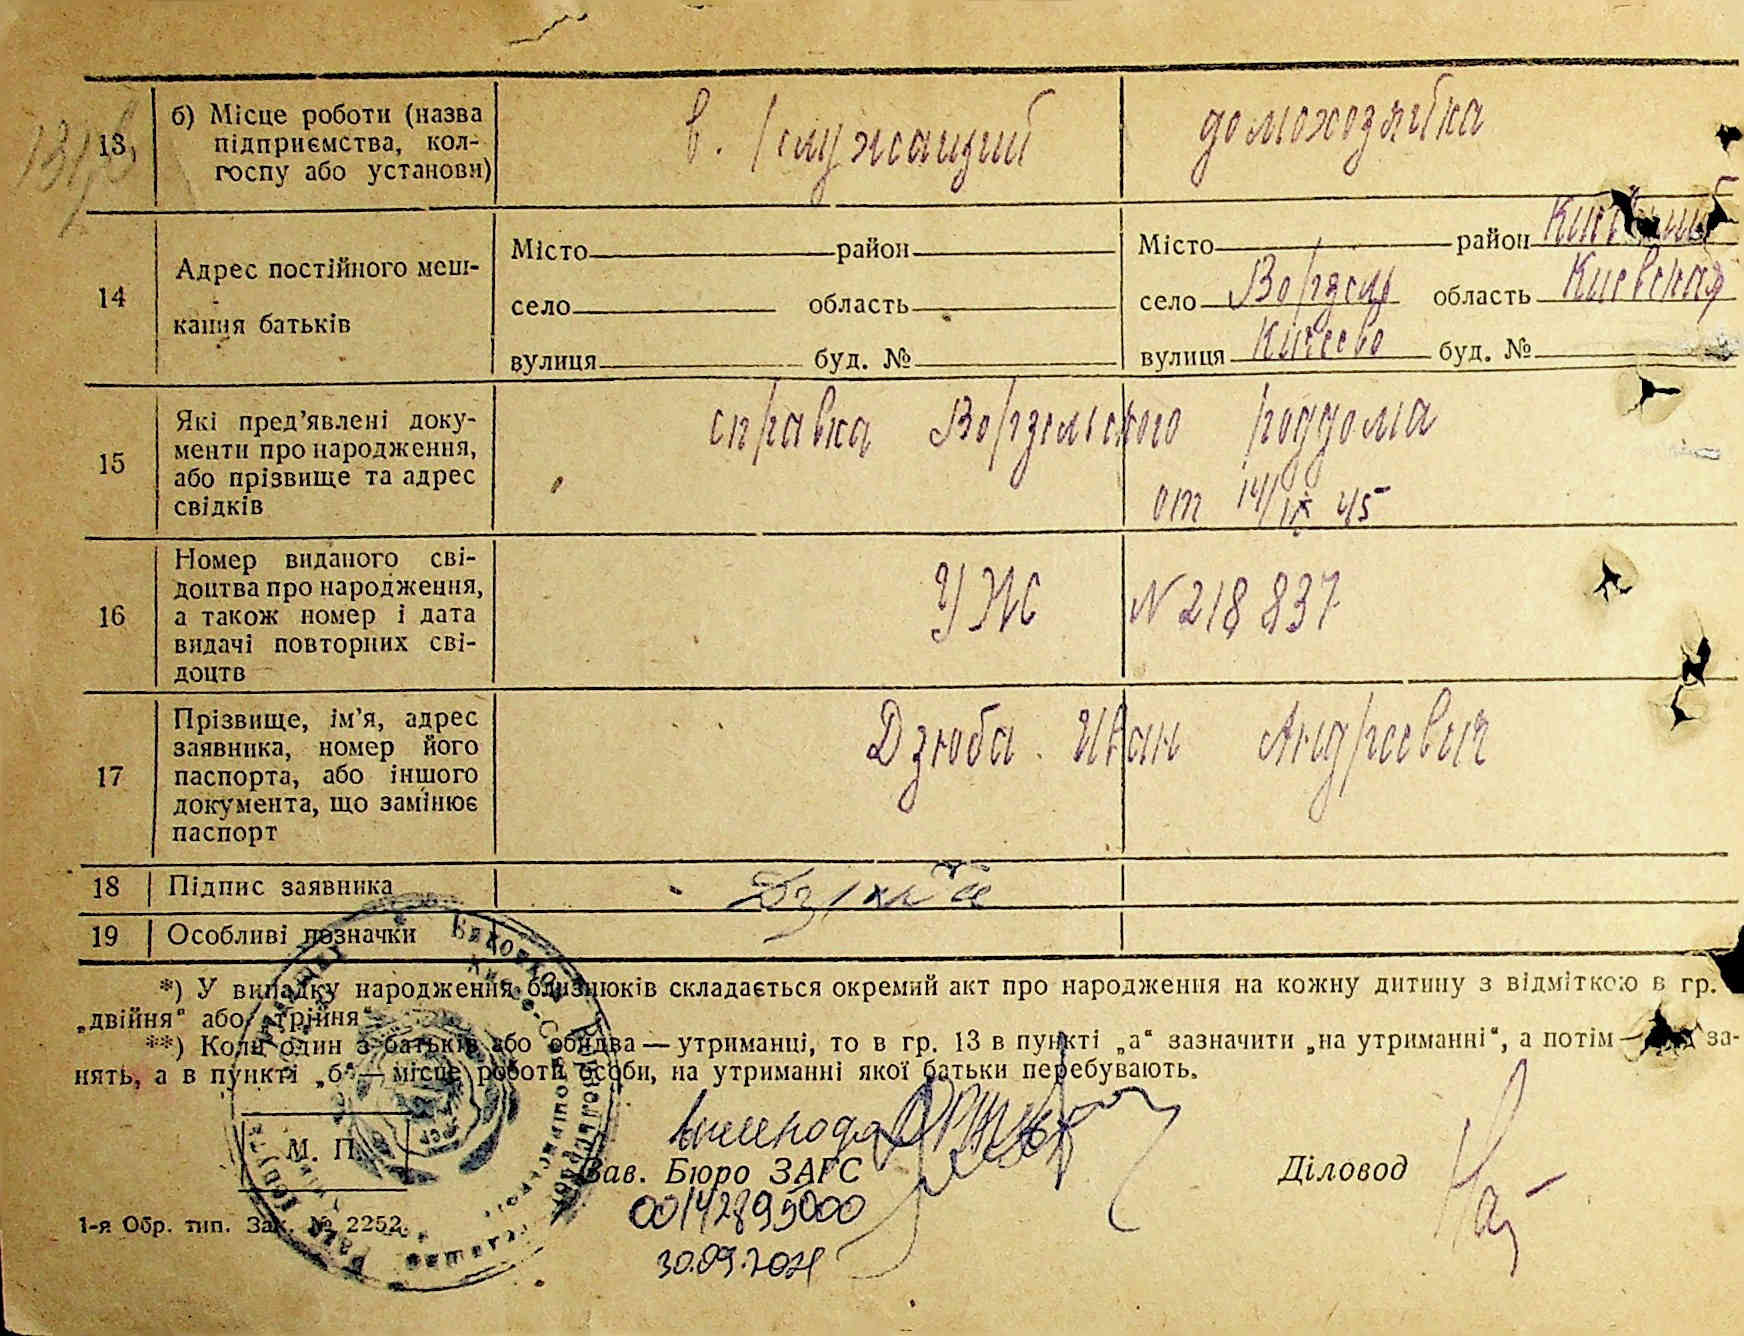 13,
б) Місце роботи (назва
підприємства, кол-
госпу або установи)
в. служащий
домохозяйка
14
Адрес постійного меш-
кання батьків
Місто район
село область
вулиця буд. №
Місто район
село Ворзель область Киевская
вулиця Кичеево буд. №
15
Які пред’явлені доку-
менти про народження,
або прізвище та адрес
свідків
справка Ворзельского роддома
от 14/IX 45
16
Номер виданого сві-
доцтва про народження,
а також номер і дата
видачі повторних сві-
доцтв
УЖ N 218 837
17
Прізвище, ім’я, адрес
заявника, номер його
паспорта, або іншого
документа, що замінює
паспорт
Дзюба Иван Андреевич
18
Підпис заявника
Дзюба
19
Особливі позначки
*) У випадку народження близнюків складається окремий акт про народження на кожну дитину з відміткою в гр.
„двійня“ або „трійня“
**) Коли один з батьків або обидва — утриманці, то в гр. 13 в пункті „а“ зазначити „на утриманні“, а потім — за-
нять, а в пункті „б“ — місце роботи особи, на утриманні якої батьки перебувають.
М. П.
Зав. Бюро ЗАГС
Діловод
00142895000
30.09.2021
1-я Обр. тип. Зак. № 2252.